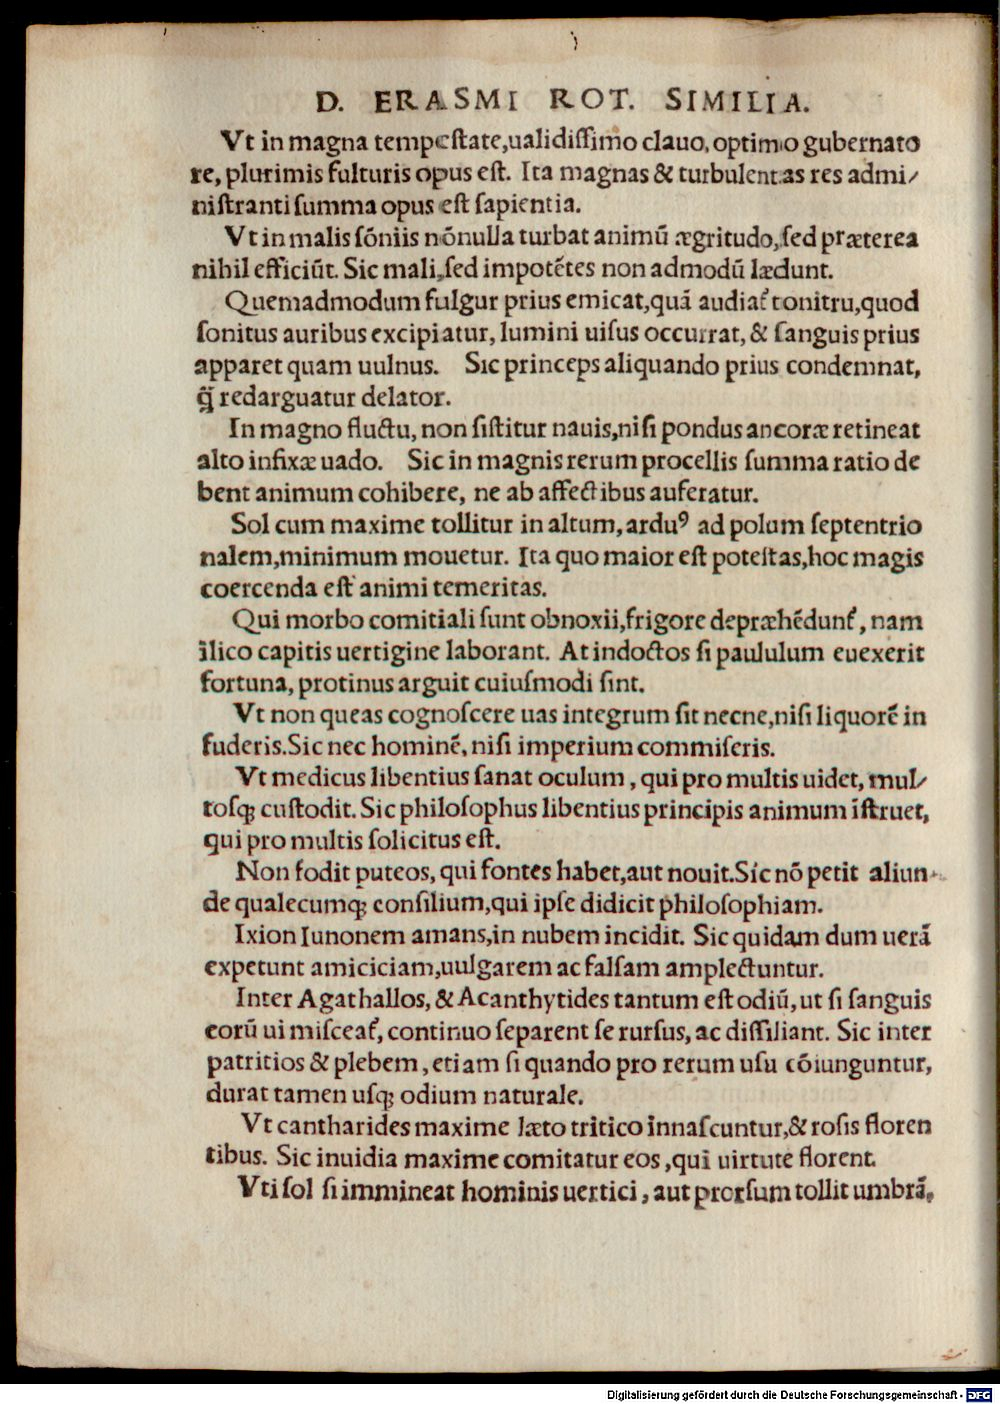 D. ERASMI ROT. SIMILIA.
Vt in magna tempestate,ualidissimo clauo, optimo gubernato
re, plurimis fulturis opus est. Ita magnas & turbulentas res admi⸗
nistranti summa opus est sapientia.
Vt in malis sōniis nōnulla turbat animū ægritudo, sed præterea
nihil efficiūt. Sic mali, sed impotētes non admodū lædunt.
Quemadmodum fulgur prius emicat,quā audiat᷑ tonitru,quod
sonitus auribus excipiatur, lumini uisus occurrat, & sanguis prius
apparet quam uulnus. Sic princeps aliquando prius condemnat,
q̃ redarguatur delator.
In magno fluctu, non sistitur nauis,nisi pondus ancoræ retineat
alto infixæ uado. Sic in magnis rerum procellis summa ratio de
bent animum cohibere, ne ab affectibus auferatur.
Sol cum maxime tollitur in altum, arduꝰ ad polum septentrio
nalem,minimum mouetur. Ita quo maior est potestas,hoc magis
coercenda est animi temeritas.
Qui morbo comitiali sunt obnoxii,frigore depræhēdunt᷑, nam
ilico capitis uertigine laborant. At indoctos si paululum euexerit
fortuna, protinus arguit cuiusmodi sint.
Vt non queas cognoscere uas integrum sit necne,nisi liquorē in
fuderis.Sic nec hominē, nisi imperium commiseris.
Vt medicus libentius sanat oculum, qui pro multis uidet, mul⸗
tosq; custodit. Sic philosophus libentius principis animum īstruet,
qui pro multis solicitus est.
Non fodit puteos, qui fontes habet,aut nouit.Sic nō petit aliun⸗
de qualecumq; consilium,qui ipse didicit philosophiam.
Ixion Iunonem amans,in nubem incidit. Sic quidam dum uerā
expetunt amiciciam,uulgarem ac falsam amplectuntur.
Inter Agathallos, & Acanthytides tantum est odiū, ut si sanguis
eorū ui misceat᷑, continuo separent se rursus, ac dissiliant. Sic inter
patritios & plebem, etiam si quando pro rerum usu cōiunguntur,
durat tamen usq; odium naturale.
Vt cantharides maxime læto tritico innascuntur,& rosis floren
tibus. Sic inuidia maxime comitatur eos, qui uirtute florent.
Vti sol si immineat hominis uertici, aut prorsum tollit umbrā,
Digitalisierung gefördert durch die Deutsche Forschungsgemeinschaft - DFG